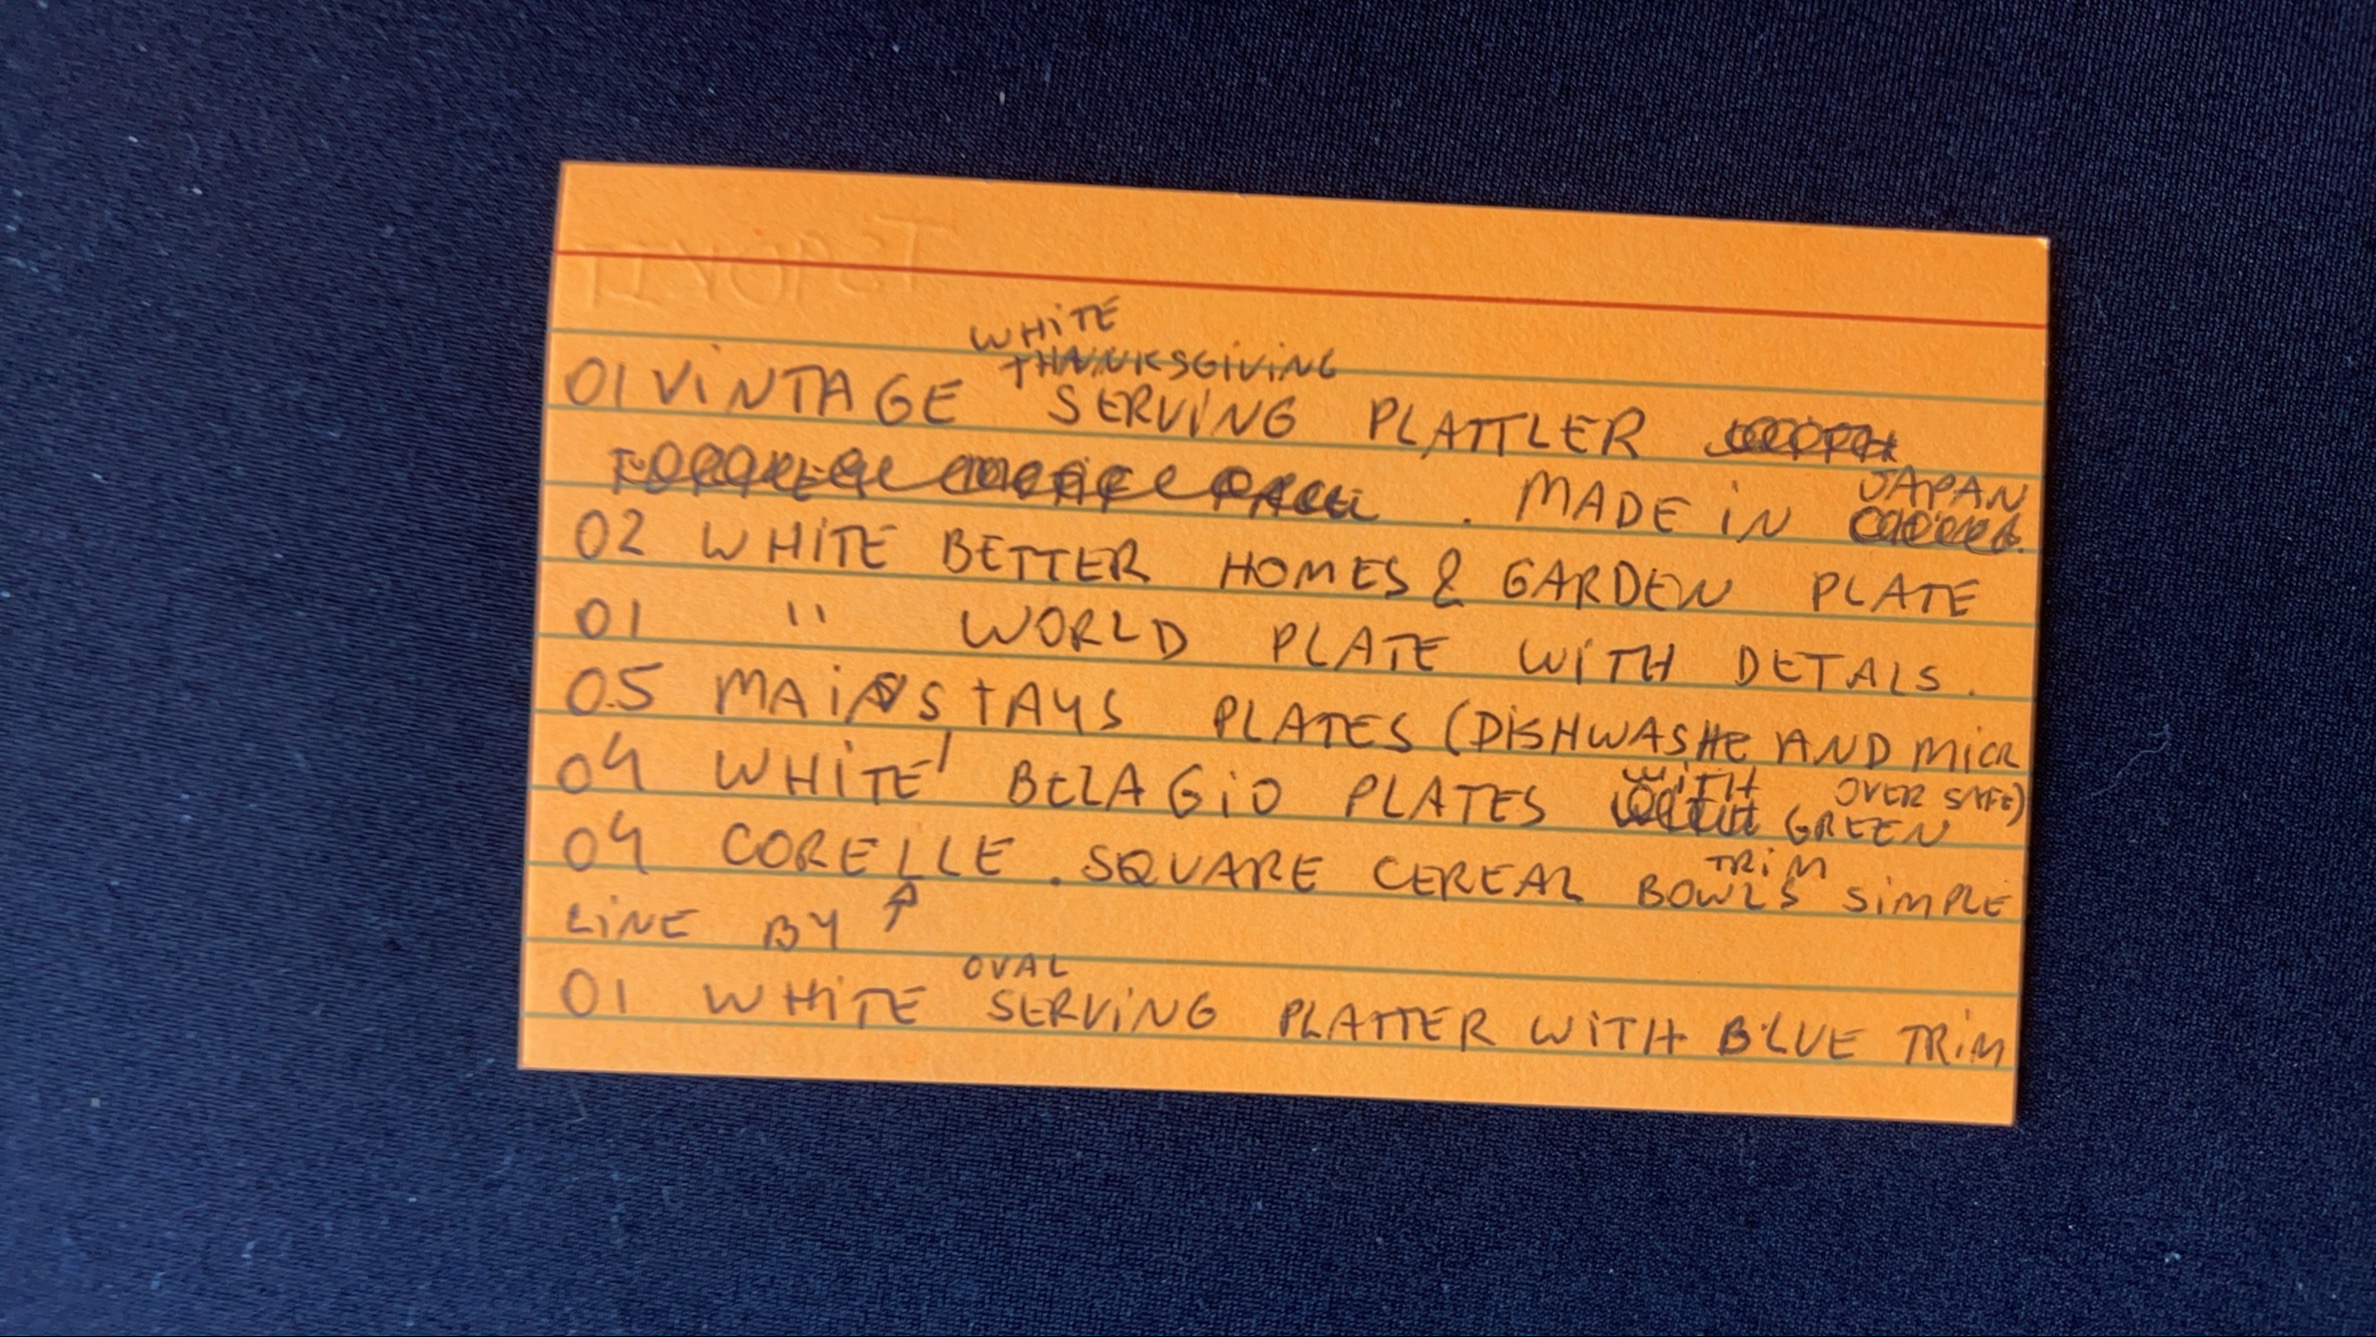 WHITE
THANKSGIVING
01 VINTAGE SERVING PLATTLER
. MADE IN JAPAN
02 WHITE BETTER HOMES & GARDEN PLATE
01 " WORLD PLATE WITH DETALS.
05 MAINSTAYS PLATES (DISHWASHE AND MICR
OVER SAFE)
04 WHITE BELAGIO PLATES WITH GREEN
TRIM
04 CORELLE . SQUARE CEREAL BOWLS SIMPLE
LINE BY ↑
OVAL
01 WHITE SERVING PLATTER WITH BLUE TRIM